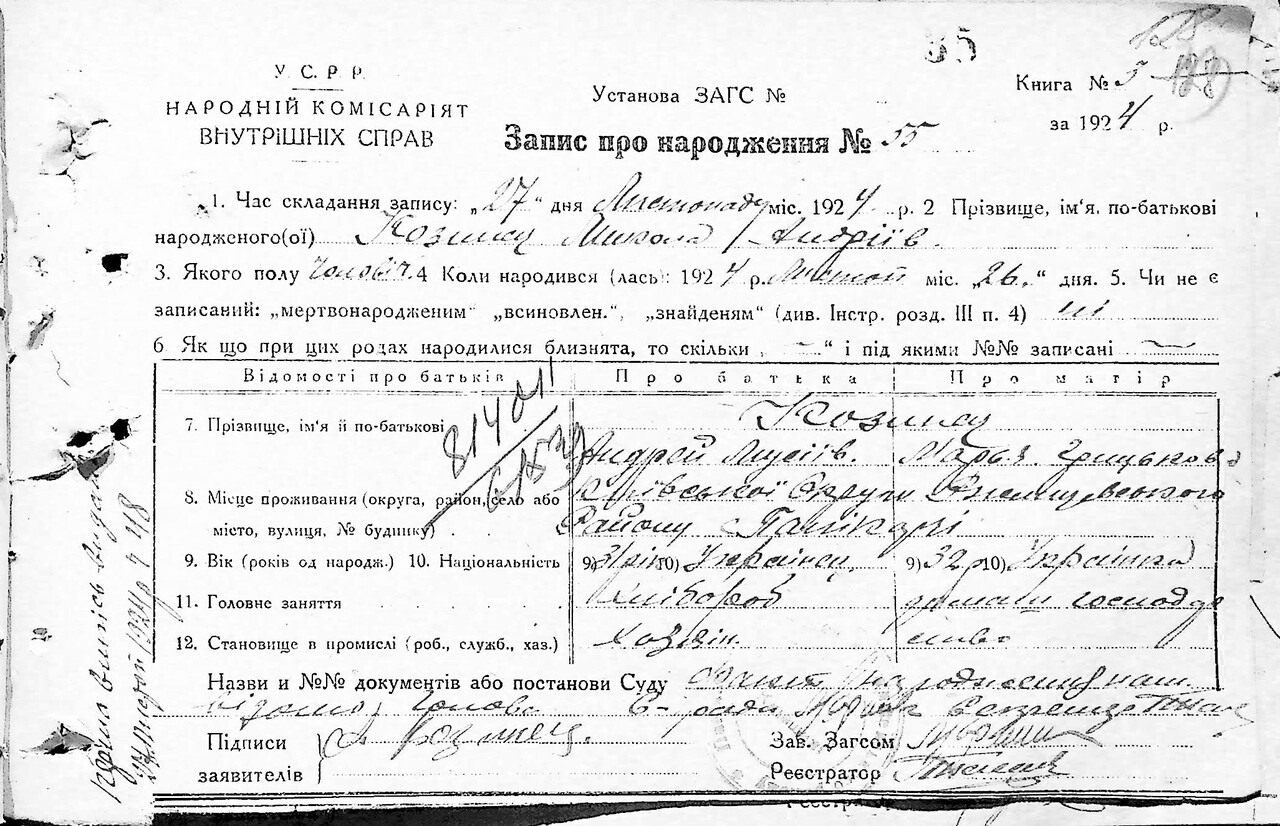 35
128
У. С. Р. Р.
НАРОДНІЙ КОМІСАРІЯТ
ВНУТРІШНІХ СПРАВ
Установа ЗАГС №
Книга № 5
за 1924 р.
Запис про народження № 55
1. Час складання запису: „27“ дня Листопаду міс. 1924 р. 2 Прізвище, ім'я, по-батькові
народженого(ої) Козинец Микола Андріїв.
3. Якого полу Чоловіч. 4 Коли народився (лась): 1924 р. Листоп міс. „26.“ дня. 5. Чи не є
записаний: „мертвонародженим“ „всиновлен.“, „знайденям“ (див. Інстр. розд. III п. 4) ні
6 Як що при цих родах народилися близнята, то скільки „—“ і під якими №№ записані —
Відомості про батьків Про батька Про матір
7. Прізвище, ім'я її по-батькові Козинец
Андрей Мусіїв. Марья Грицькова
8. Місце проживання (округа, район, село або Київської Округи
місто, вулиця, № будинку) Району
9. Вік (років од народж.) 10. Національність 9) 31 рік 10) Українец 9) 32 р 10) Українка
11. Головне заняття Хлібороб домаш господар
12. Становище в промислі (роб., служб., хаз.) Хозяїн ство
Назви и №№ документів або постанови Суду Факт народження нам
відомо, Голова С-ради
Підписи
заявителів
Зав. Загсом
Реєстратор
81401